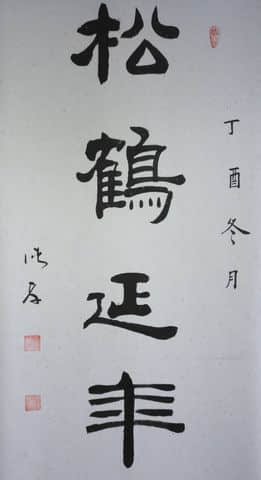 松鶴延年
丁酉冬月